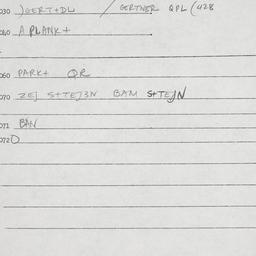 030 )GERT+DL / GERTNER QPL (428
040 A PLANK+
060 PARK+ QR
070 ZEJ S+TEJ3N BAM S+TEJN
071 BAN
072